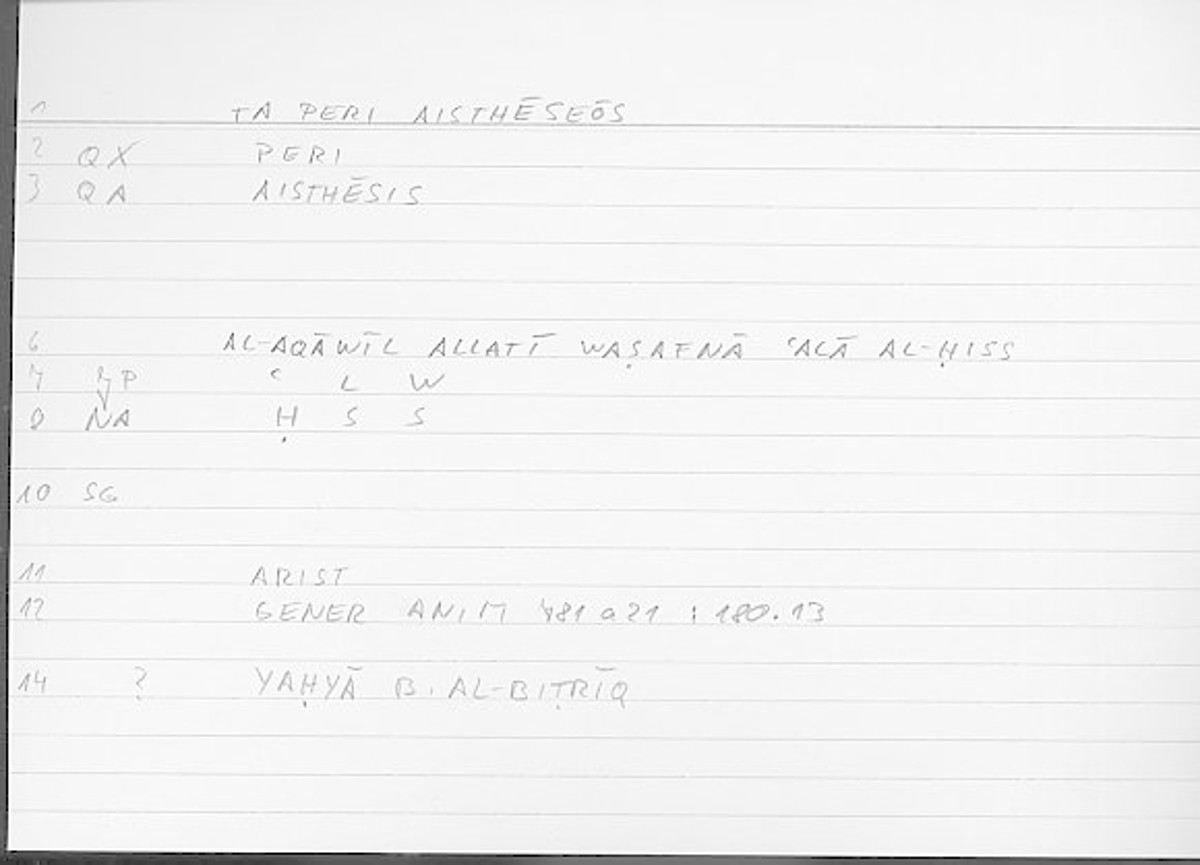 1 TA PERI AISTHĒSEŌS
2 QX PERI
3 QA AISTHĒSIS
6 AL-AQĀWĪL ALLATĪ WAṢAFNĀ ʿALĀ AL-ḤISS
7 P ʿ L W
8 NA Ḥ S S
10 SG
11 ARIST
12 GENER ANIM 781 a 21 : 180.13
14 ? YAḤYĀ B. AL-BIṬRĪQ